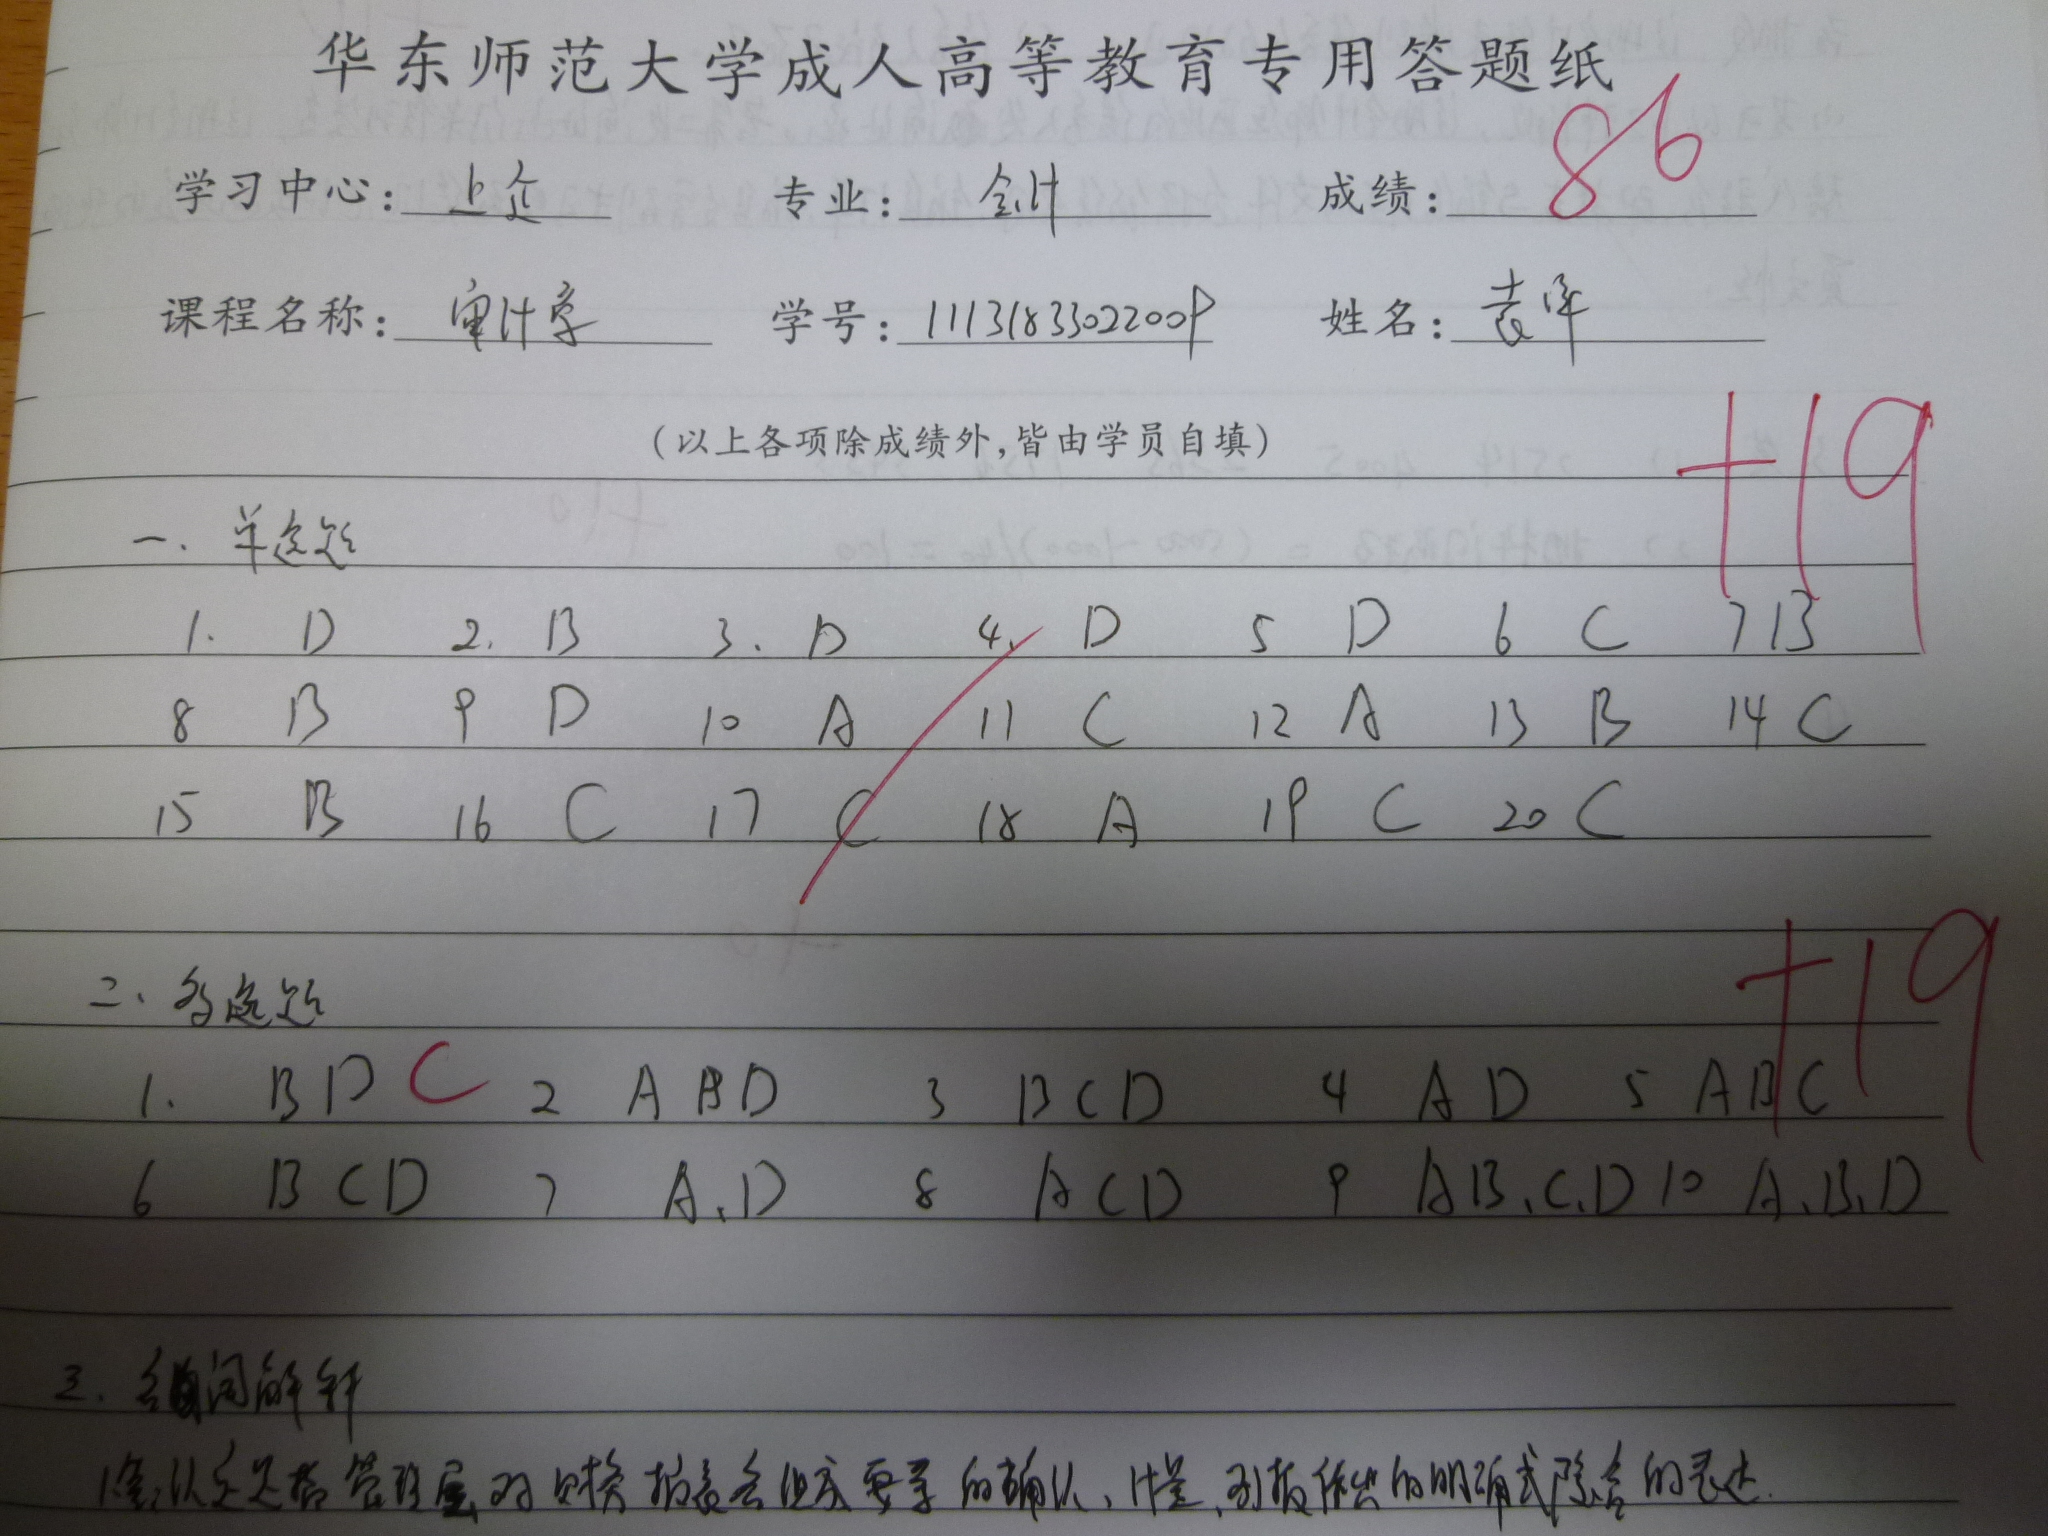 华东师范大学成人高等教育专用答题纸
学习中心: 上企 专业: 会计 成绩: 86
课程名称: 审计学 学号: 11131833022009 姓名: 袁
(以上各项除成绩外,皆由学员自填)
+19
一. 单选题
1. D 2. B 3. D 4. D 5 D 6 C 7 B
8 B 9 D 10 A 11 C 12 A 13 B 14 C
15 B 16 C 17 C 18 A 19 C 20 C
+19
二. 多选题
1. BD C 2 ABD 3 BCD 4 AD 5 ABC
6 BCD 7 A.D 8 ACD 9 AB.C.D 10 A.B.D
三. 名词解释
认定是指管理层对财务报表各组成要素的确认、计量、列报作出的明确或隐含的表达.